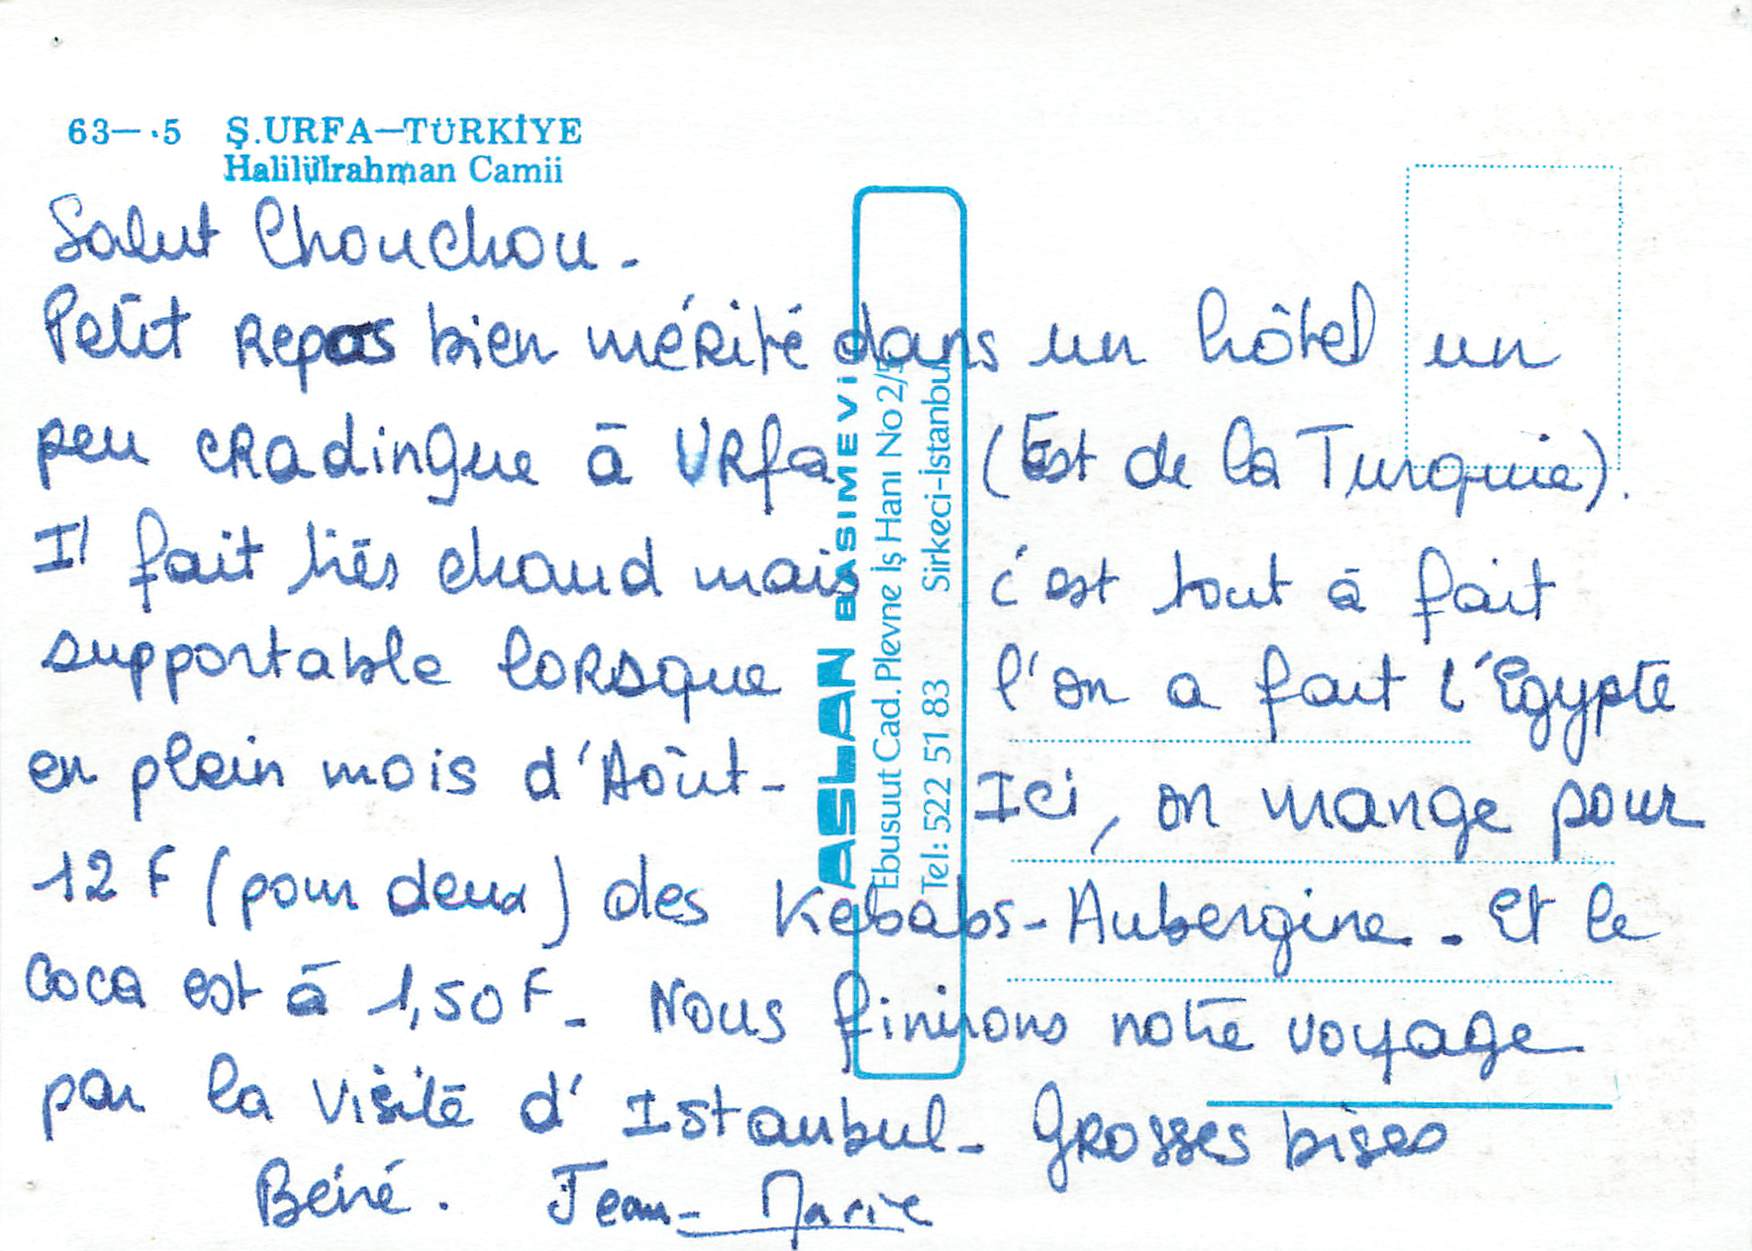 63—·5 Ş.URFA—TÜRKİYE
Halilülrahman Camii
Salut Chouchou.
Petit Repas bien mérité dans un hôtel un
peu cradingue à Urfa (Est de la Turquie).
Il fait très chaud mais c'est tout à fait
supportable lorsque l'on a fait l'Egypte
en plein mois d'Août - Ici, on mange pour
12 F (pour deux) des Kebabs-Aubergine. Et le
Coca est à 1,50 F - Nous finirons notre voyage
par la visite d'Istanbul - Grosses bises
Béné. Jean-Marie
ASLAN BASIMEVİ
Ebusuut Cad. Plevne İş Hanı No 2/5
Tel: 522 51 83 Sirkeci-İstanbul